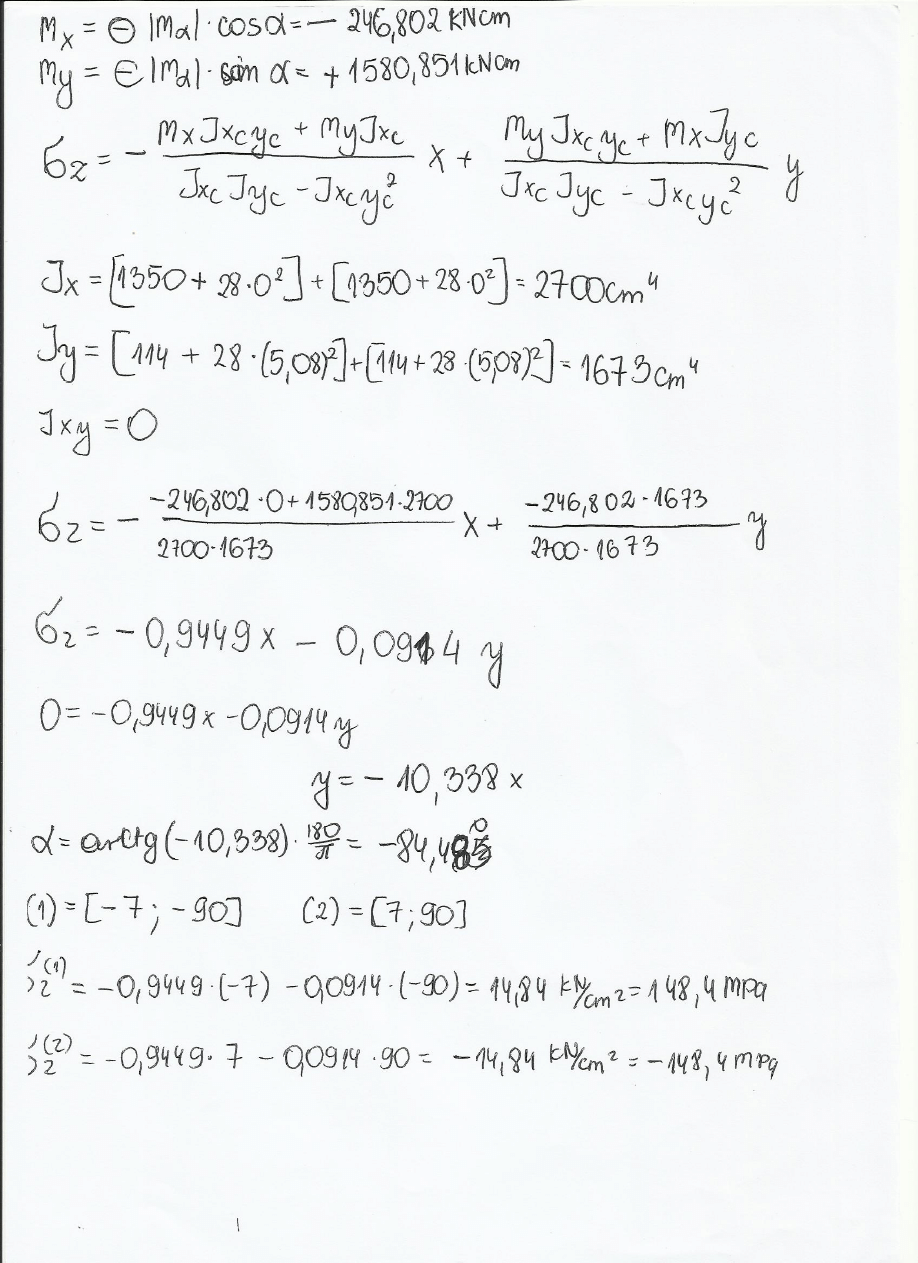 Mx = ⊖ |Mα| · cosα = − 246,802 kNcm
My = ⊕ |Mα| · sin α = + 1580,851 kNcm
σz = − (MxJxcyc + MyJxc)/(JxcJyc − Jxcyc²) x + (MyJxcyc + MxJyc)/(JxcJyc − Jxcyc²) y
Jx = [1350 + 28·0²] + [1350 + 28·0²] = 2700cm⁴
Jy = [114 + 28·(5,08)²] + [114 + 28·(5,08)²] = 1673cm⁴
Jxy = 0
σz = − (−246,802·0 + 1580,851·2700)/(2700·1673) x + (−246,802·1673)/(2700·1673) y
σz = − 0,9449x − 0,0914 y
0 = −0,9449x − 0,0914y
y = − 10,338 x
α = arctg(−10,338)· 180/π =
(1) = [−7; −90] (2) = [7; 90]
(1) z = −0,9449·(−7) − 0,0914·(−90) = 14,84 kN/cm² = 148,4 mpa
(2) z = −0,9449·7 − 0,0914·90 = −14,84 kN/cm² = −148,4 mpa